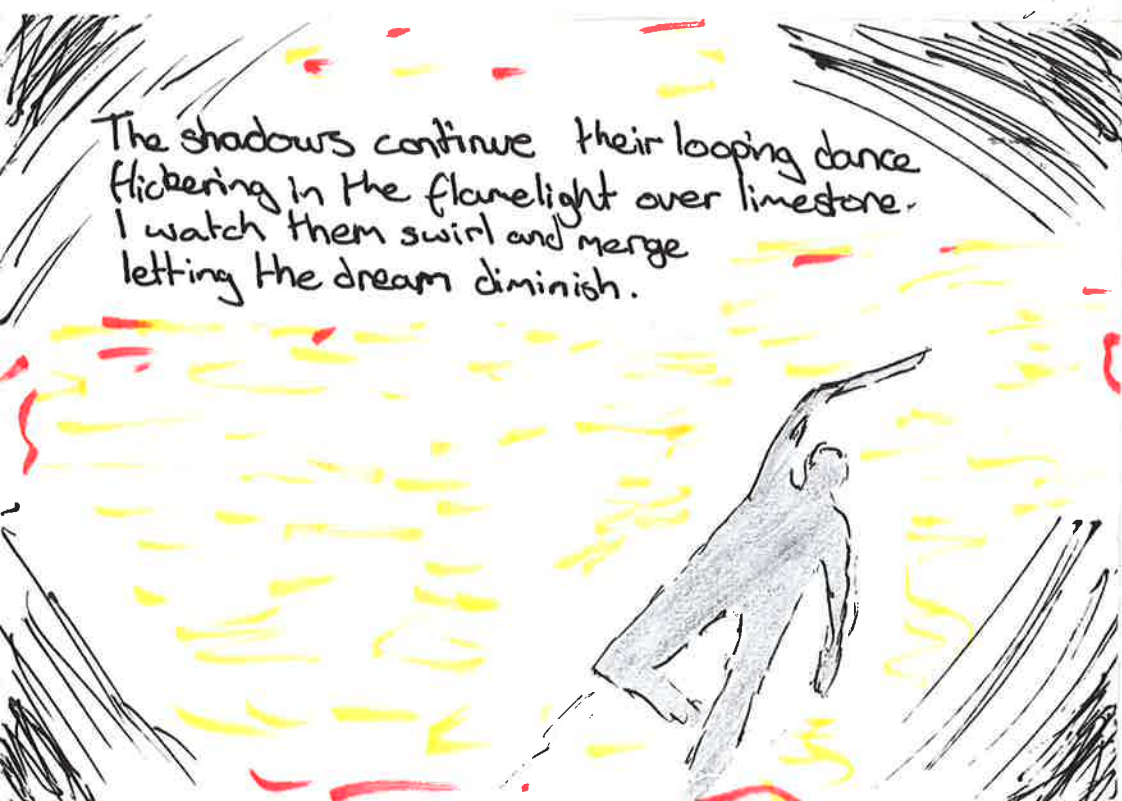 The shadows continue their looping dance
flickering in the flamelight over limestone.
I watch them swirl and merge
letting the dream diminish.